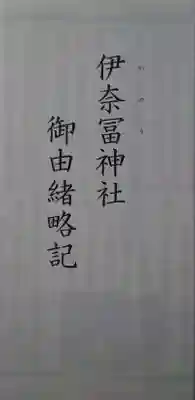 伊奈冨神社
御由緒略記